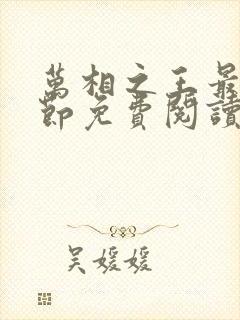 萬相之王最
節免費閱讀
吴媛媛